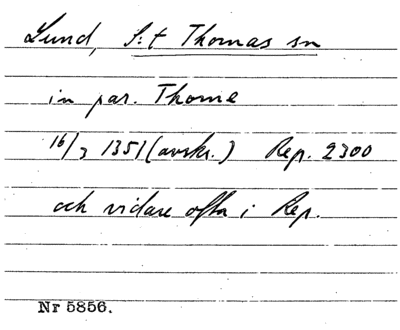 Lund, S:t Thomas sn
in par. Thome
16/3 1351 (avskr.) Rep. 2300
och vidare ofta i Rep.
Nr 5856.